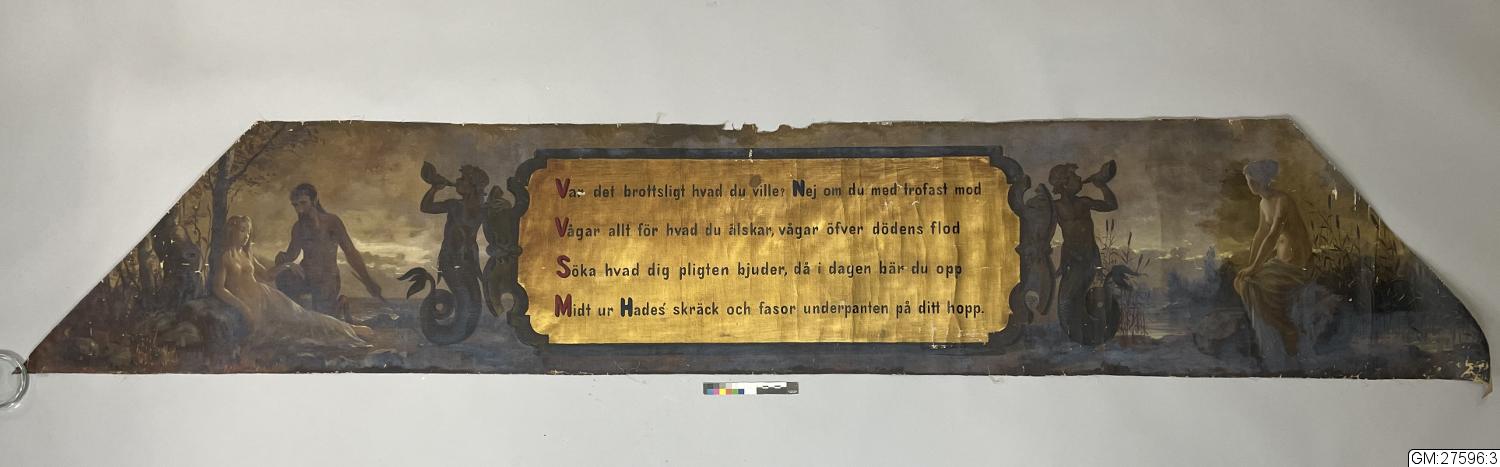 Var det brottsligt hvad du ville? Nej om du med trofast mod
Vågar allt för hvad du älskar, vågar öfver dödens flod
Söka hvad dig pligten bjuder, då i dagen bär du opp
Midt ur Hades' skräck och fasor underpanten på ditt hopp.
GM:27596:3